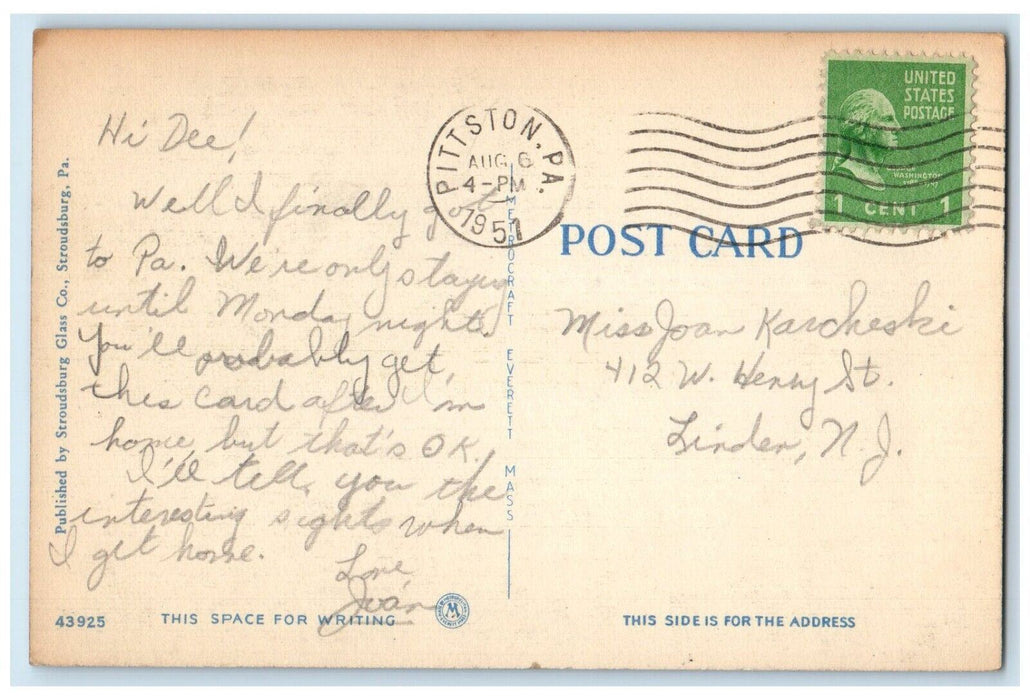 Hi Dee!
Well I finally got
to Pa. We're only staying
until Monday night.
You'll probably get
this card after I'm
home, but that's OK.
I'll tell you the
interesting sights when
I get home.
Love,
Joan
Published by Stroudsburg Glass Co., Stroudsburg, Pa.
43925
THIS SPACE FOR WRITING
METROCRAFT EVERETT MASS
PITTSTON, PA.
AUG 6
4-PM
1951
UNITED
STATES
POSTAGE
WASHINGTON
1 CENT 1
POST CARD
Miss Joan Karcheski
412 W. Henry St.
Linden, N. J.
THIS SIDE IS FOR THE ADDRESS